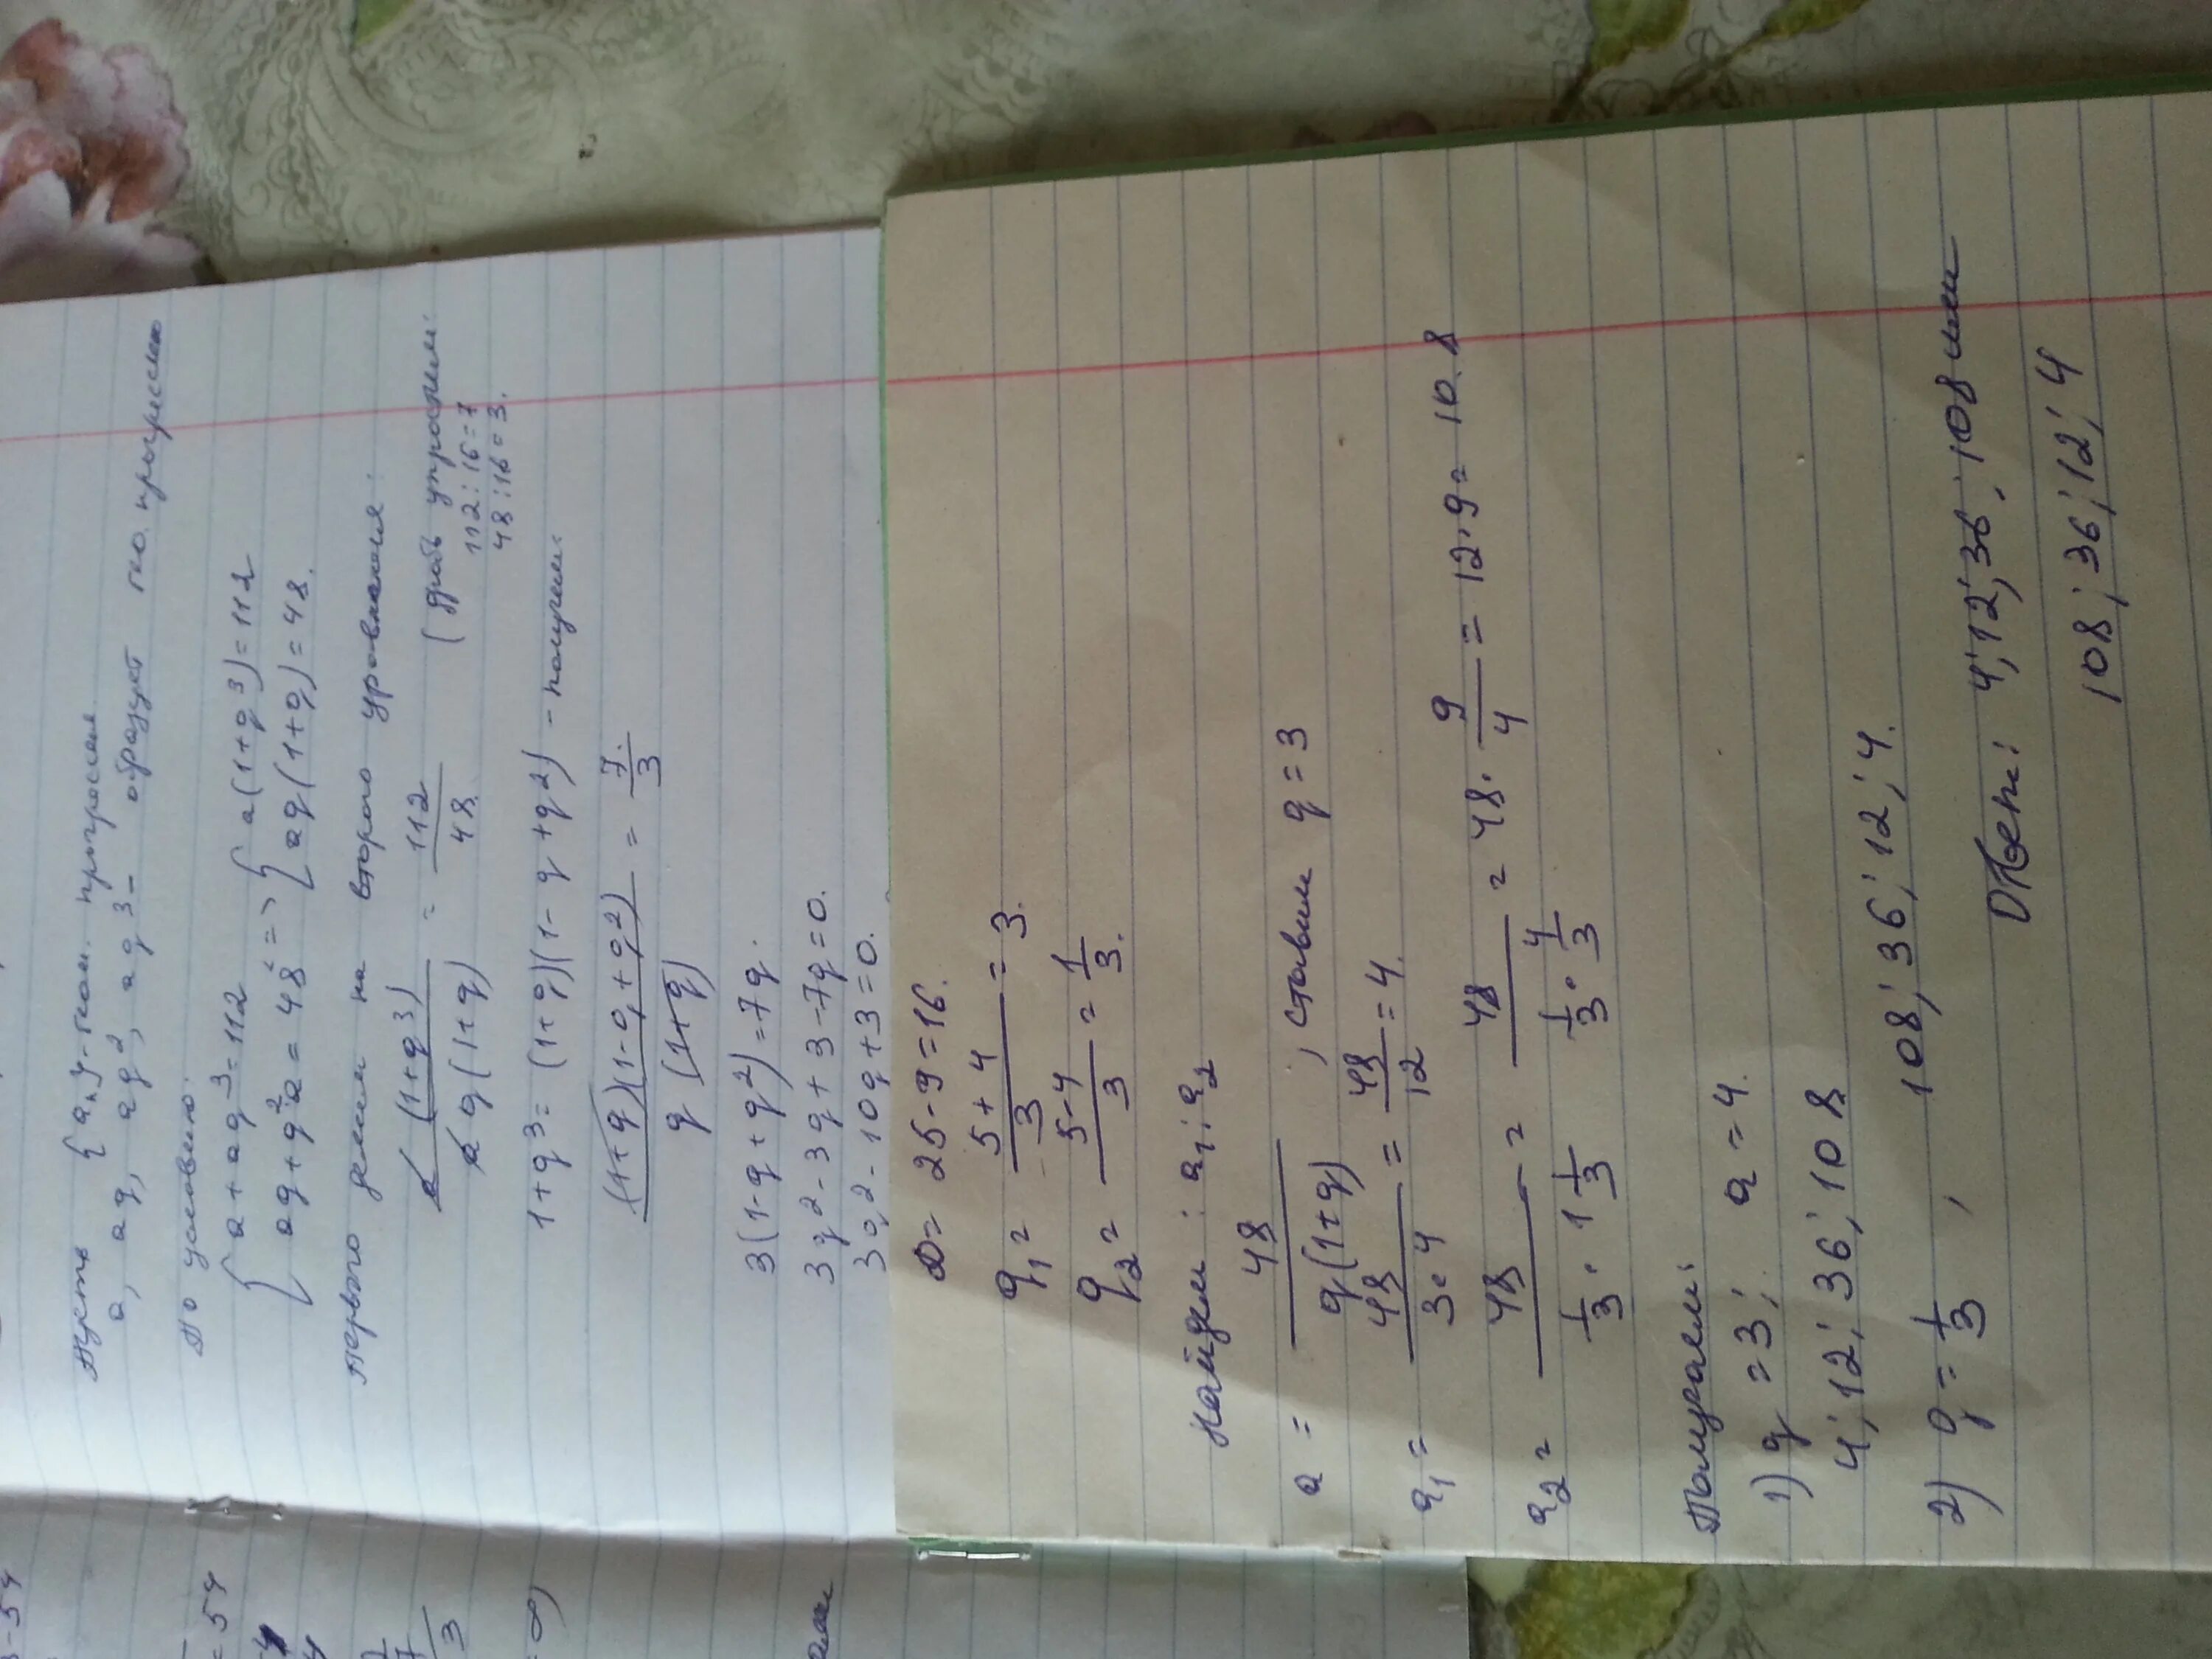 Пусть {aₙ}-геом. прогрессия
a, aq, aq², aq³ - образует гео. прогрессию
По условию:
{ a + aq³ = 112
aq + q²a = 48 => { a(1+q³) = 112
aq(1+q) = 48.
Первого делим на второго уравнения:
a(1+q³) / aq(1+q) = 112/48 (дробь упростим:
112:16=7
48:16=3.
1+q³ = (1+q)(1-q+q²) - получим:
(1+q)(1-q+q²) / q(1+q) = 7/3.
3(1-q+q²) = 7q.
3q² - 3q + 3 - 7q = 0.
3q² - 10q + 3 = 0.
D = 25-9=16.
q₁ = (5+4)/3 = 3.
q₂ = (5-4)/3 = 1/3.
Найдем: a₁; a₂
a = 48 / q(1+q), ставим q = 3
a₁ = 48/3·4 = 48/12 = 4.
a₂ = 48 / 1/3 · 1 1/3 = 48 / 1/3 · 4/3 = 48 · 9/4 = 12·9 = 108
Получаем:
1) q = 3; a = 4.
4; 12; 36; 108
2) q = 1/3, 108; 36; 12; 4.
Ответ: 4; 12; 36; 108 или
108; 36; 12; 4
= 54